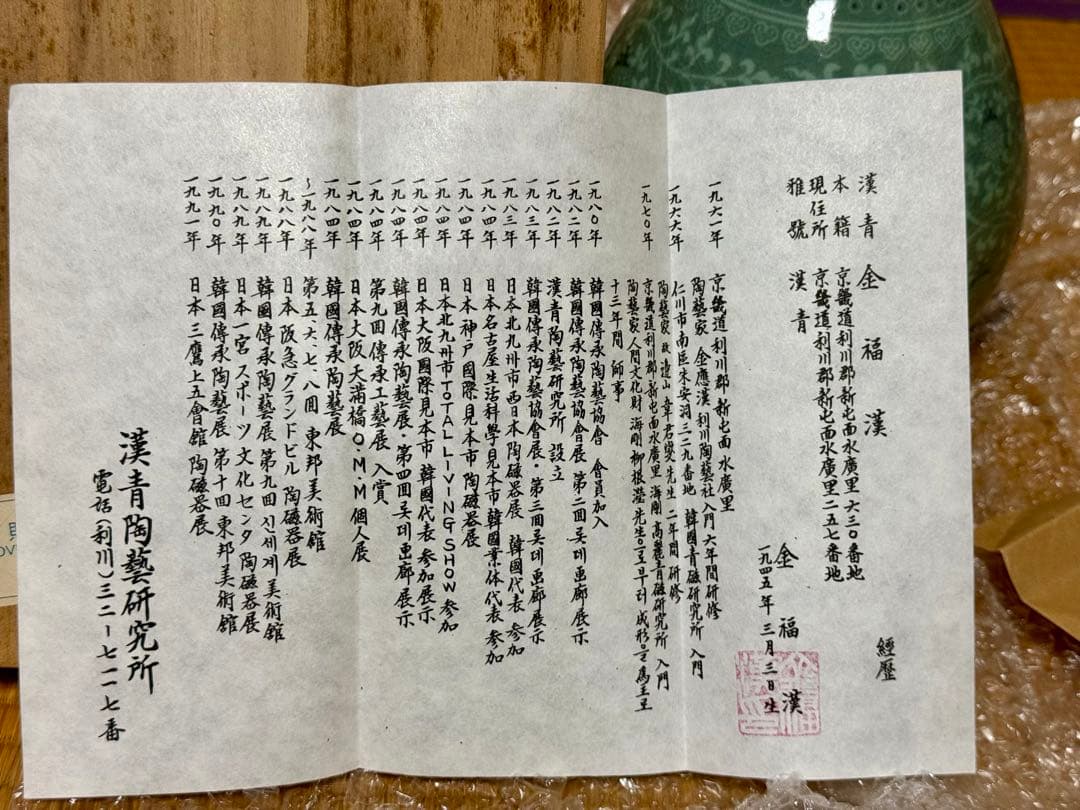 漢青 金福漢 經歷
本籍 京畿道利川郡新屯面水廣里六三〇番地
現住所 京畿道利川郡新屯面水廣里二五七番地
雅號 漢青
金福漢
一九四五年三月三日生
一九六一年 京畿道利川郡新屯面水廣里
陶藝家 金應漢利川陶藝社入門六年間研修
一九六六年 仁川市南區朱安洞三二九番地 韓國青磁研究所入門
陶藝家 故 遠山 先生 二年間 研修
一九七〇年 京畿道利川郡新屯面水廣里 海剛高麗青磁研究所入門
陶藝家人間文化財 海剛柳根瀅先生으로부터 成形을 爲主로
十三年間 師事
一九八〇年 韓國傳承陶藝協會 會員加入
一九八二年 韓國傳承陶藝協會展 第二回 롯데画廊展示
一九八二年 漢青陶藝研究所 設立
一九八三年 韓國傳承陶藝協會展・第三回롯데画廊展示
一九八三年 日本北九州市西日本陶磁器展 韓國代表參加
一九八四年 日本名古屋生活科學見本市韓國業体代表參加
一九八四年 日本神戸國際見本市陶磁器展
一九八四年 日本北九州市TOTAL LIVING SHOW參加
一九八四年 日本大阪國際見本市 韓國代表 參加展示
一九八四年 韓國傳承陶藝展・第四回롯데画廊展示
一九八四年 第九回傳承工藝展 入賞
一九八四年 日本大阪天満橋O・M・M個人展
一九八四年 韓國傳承陶藝展
~一九八八年 第五、六、七、八回 東邦美術館
一九八八年 日本 阪急グランドビル 陶磁器展
一九八九年 韓國傳承陶藝展第九回신세계美術館
一九八九年 日本一宮スポーツ文化センタ陶磁器展
一九九〇年 韓國傳承陶藝展 第十回 東邦美術館
一九九一年 日本三鷹上五會館 陶磁器展
漢青陶藝研究所
電話(利川)三二-七一一七番